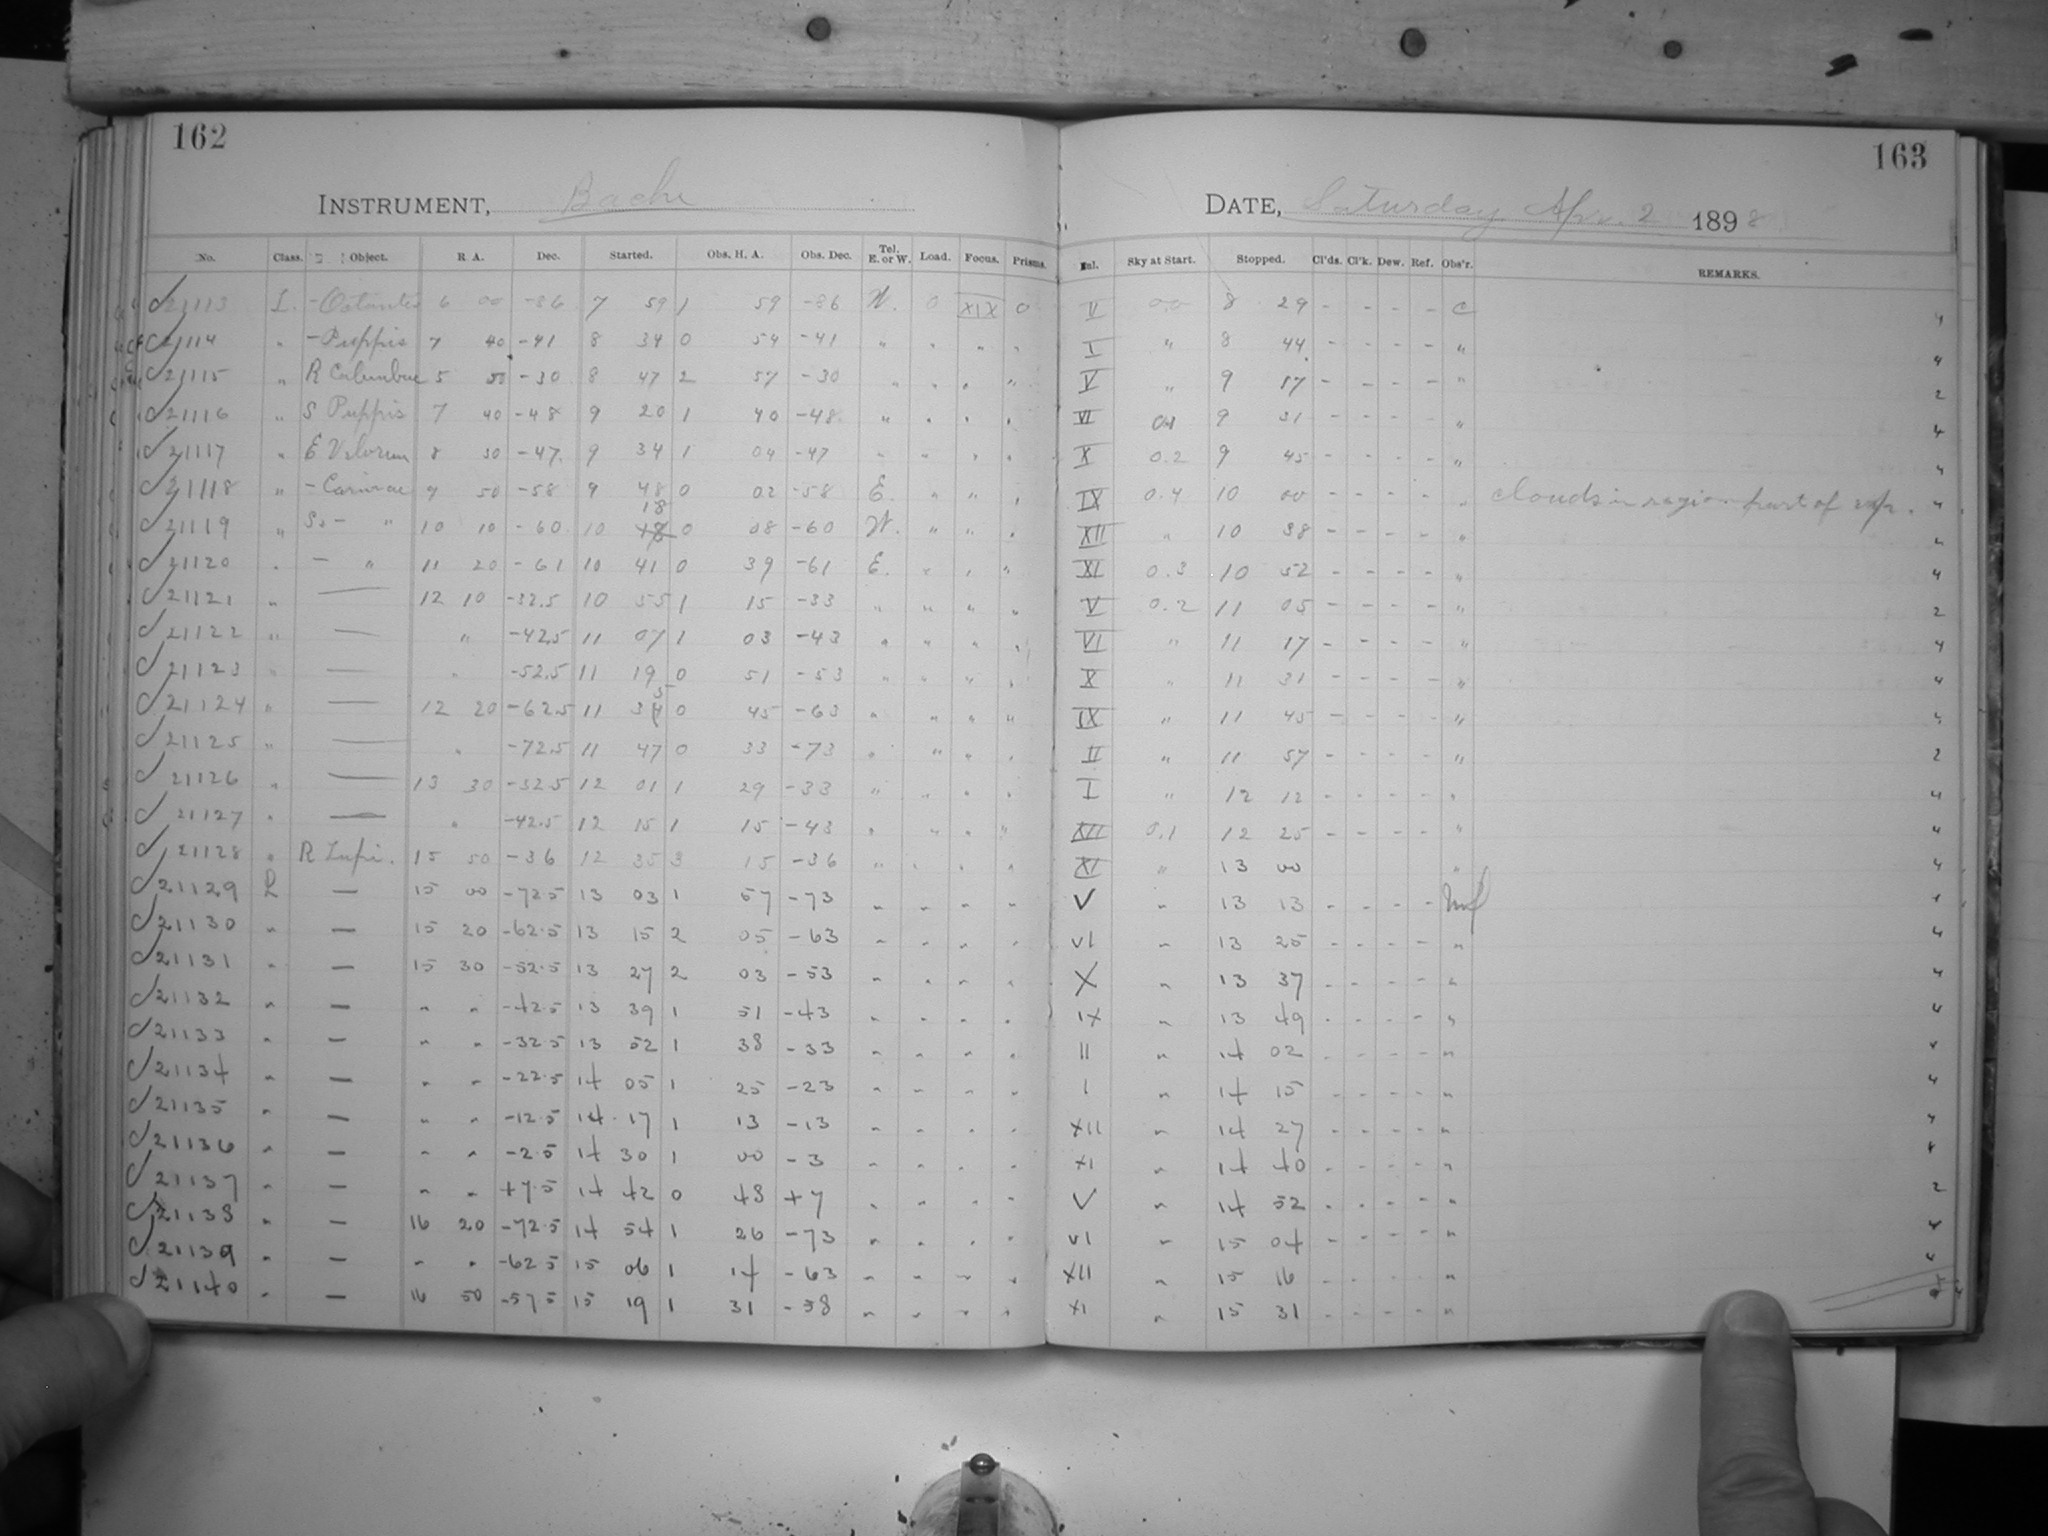 162
163
INSTRUMENT, Bache
DATE, Saturday Apr. 2 1898
No. Class. Object. R A. Dec. Started. Obs. H. A. Obs. Dec. Tel. E. or W. Load. Focus. Prisms. Enl. Sky at Start. Stopped. Cl'ds. Cl'k. Dew. Ref. Obs'r. REMARKS.
21113 L. - Octantis 6 00 -86 7 59 1 59 -86 W. 0 XIX 0 II 0.0 8 29 - - - - C 4
21114 " - Puppis 7 40 -41 8 34 0 54 -41 " " " " I " 8 44 - - - - " 4
21115 " R Columbae 5 50 -30 8 47 2 57 -30 " " " " V " 9 17 - - - - " 2
21116 " S Puppis 7 40 -48 9 20 1 40 -48 " " " " VI 0.1 9 31 - - - - " 4
21117 " E Velorum 8 30 -47 9 34 1 04 -47 " " " " X 0.2 9 45 - - - - " 4
21118 " - Carinae 9 50 -58 9 48 0 02 -58 E. " " " IX 0.4 10 00 - - - - " clouds in region part of exp. 4
21119 " S. - " 10 10 -60 10 18 0 08 -60 W. " " " XII " 10 38 - - - - " 4
21120 " - " 11 20 -61 10 41 0 39 -61 E. " " " XI 0.3 10 52 - - - - " 4
21121 " — 12 10 -32.5 10 55 1 15 -33 " " " " V 0.2 11 05 - - - - " 2
21122 " — " -42.5 11 07 1 03 -43 " " " " VI " 11 17 - - - - " 4
21123 " — " -52.5 11 19 0 51 -53 " " " " X " 11 31 - - - - " 4
21124 " — 12 20 -62.5 11 35 0 45 -63 " " " " IX " 11 45 - - - - " 4
21125 " — " -72.5 11 47 0 33 -73 " " " " II " 11 57 - - - - " 2
21126 " — 13 30 -32.5 12 01 1 29 -33 " " " " I " 12 12 - - - - " 4
21127 " — " -42.5 12 15 1 15 -43 " " " " XII 0.1 12 25 - - - - " 4
21128 " R Lupi. 15 50 -36 12 35 3 15 -36 " " " " XI " 13 00 " 4
21129 L — 15 00 -72.5 13 03 1 57 -73 " " " " V " 13 13 - - - - 4
21130 " — 15 20 -62.5 13 15 2 05 -63 " " " " VI " 13 25 - - - - " 4
21131 " — 15 30 -52.5 13 27 2 03 -53 " " " " X " 13 37 - - - - " 4
21132 " — " " -42.5 13 39 1 51 -43 " " " " IX " 13 49 - - - - " 4
21133 " — " " -32.5 13 52 1 38 -33 " " " " II " 14 02 - - - - " 4
21134 " — " " -22.5 14 05 1 25 -23 " " " " I " 14 15 - - - - " 4
21135 " — " " -12.5 14 17 1 13 -13 " " " " XII " 14 27 - - - - " 4
21136 " — " " -2.5 14 30 1 00 -3 " " " " XI " 14 40 - - - - " 4
21137 " — " " +7.5 14 42 0 48 +7 " " " " V " 14 52 - - - - " 2
21138 " — 16 20 -72.5 14 54 1 26 -73 " " " " VI " 15 04 - - - - " 4
21139 " — " " -62.5 15 06 1 14 -63 " " " " XII " 15 16 - - - - " 4
21140 " — 16 50 -57.5 15 19 1 31 -58 " " " " XI " 15 31 - - - - "